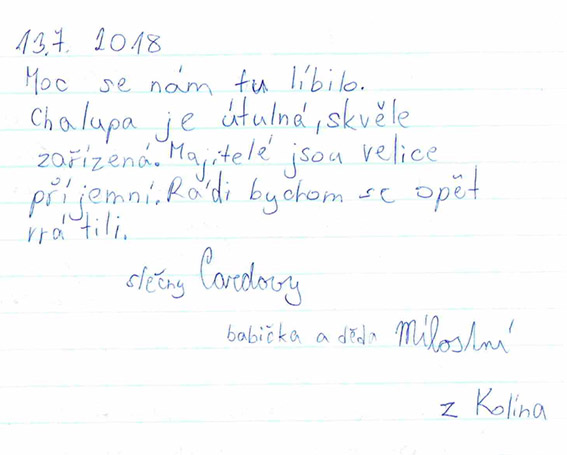 13.7. 2018
Moc se nám tu líbilo.
Chalupa je útulná, skvěle
zařízená. Majitelé jsou velice
příjemní. Rádi bychom se opět
vrátili.
slečny
babička a děda Milostní
z Kolína